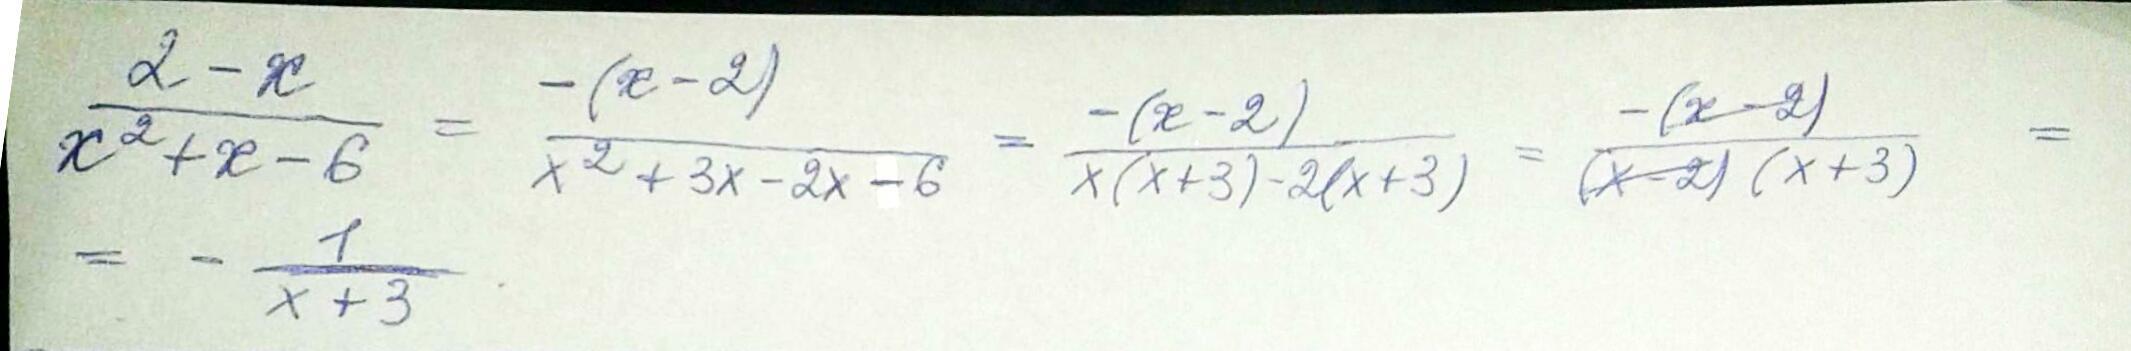 (2 - x)/(x² + x - 6) = (-(x - 2))/(x² + 3x - 2x - 6) = (-(x - 2))/(x(x+3) - 2(x+3)) = (-(x - 2))/((x - 2)(x + 3)) =
= - 1/(x + 3)